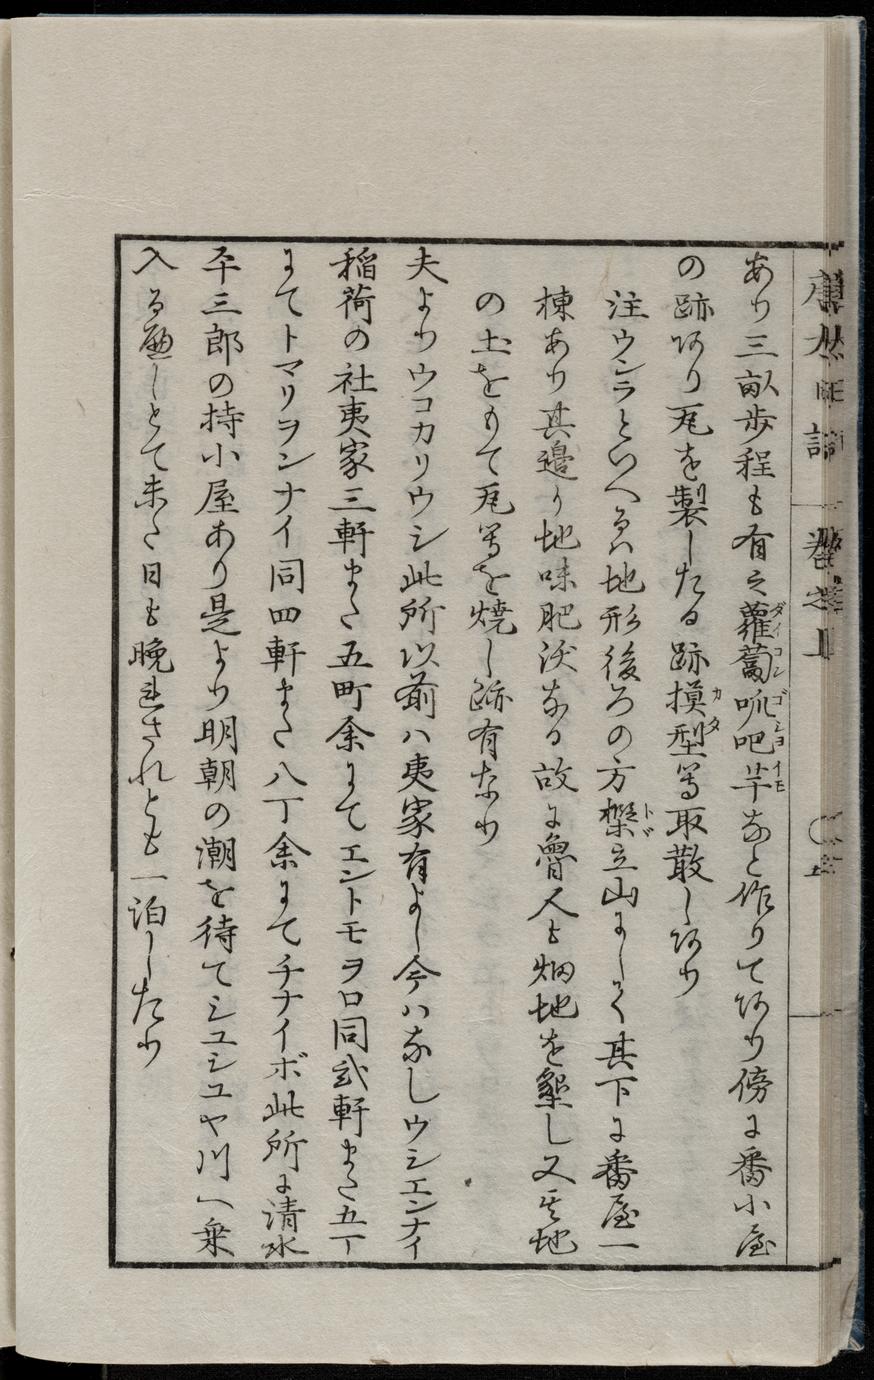 あり三畝歩程も有之蘿蔔呱吧芋なと作りてあり傍に番小屋
の跡あり瓦を製したる跡摸型等取散しあり
注ウンラといへるハ地形後ろの方椴立山にして其下に番屋一
棟あり其邉り地味肥沃なる故に魯人も畑地を墾し又其地
の土をもて瓦等を焼し跡有なり
夫よりウコカリウシ此所以前ハ夷家有よし今ハなしウシエンナイ
稲荷の社夷家三軒また五町余にてエントモヲロ同弐軒また五丁
にてトマリヲンナイ同四軒また八丁余にてチナイボ此所に清水
平三郎の持小屋あり是より明朝の潮を待てシユシユヤ川へ乗
入る應しとて未た日も晩れされとも一泊したり